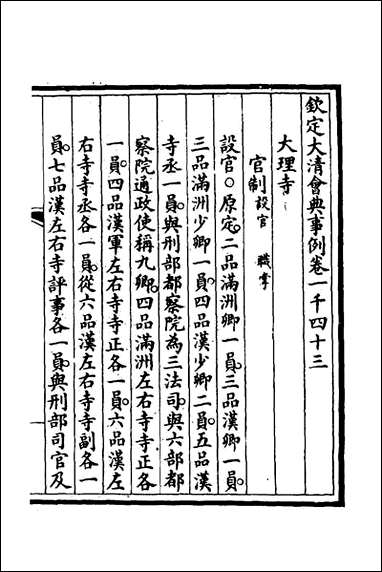 欽定大清會典事例卷一千四十三
大理寺
官制設官 職掌
設官○原定。二品滿洲卿一員。三品漢卿一員。
三品滿洲少卿一員。四品漢少卿二員。五品漢
寺丞一員。與刑部都察院為三法司。與六部都
察院通政使稱九卿。四品滿洲左右寺寺正各
一員。四品漢軍左右寺寺正各一員。六品漢左
右寺寺丞各一員。從六品漢左右寺寺副各一
員。七品漢左右寺評事各一員。與刑部司官及